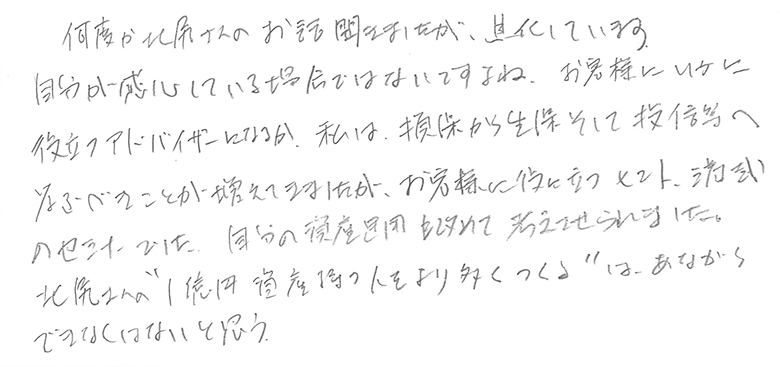 何度か北尻さんのお話聞きましたが、進化しています
自分が感心している場合ではないですよね. お客様にいかに
役立つアドバイザーになるか. 私は、損保から生保そして投信等へ
なるべきことが増えてきましたが、お客様に役に立つヒント、満載
のセミナーでした. 自分の資産運用も改めて考えさせられました。
北尻さんの"1億円資産持つ人をより多くつくる"は、あながち
できなくはないと思う.